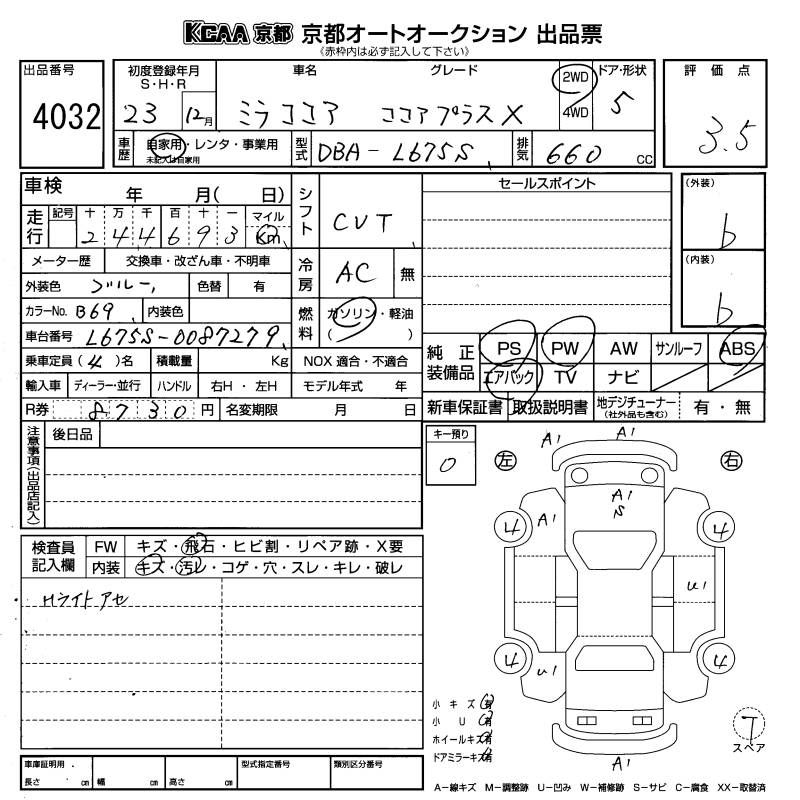 KCAA 京都 京都オートオークション 出品票
《赤枠内は必ず記入して下さい》
出品番号 4032
初度登録年月 S・H・R 車名 グレード 2WD 4WD ドア・形状 評価点
23 12月 ミラココア ココアプラスX 5 3.5
車歴 自家用・レンタ・事業用 未記入は自家用 型式 DBA-L675S 排気 660 CC
車検 年 月( 日) シフト CVT セールスポイント (外装) b
走行 記号 十 万 千 百 十 一 マイル km
2 4 4 6 9 3
メーター歴 交換車・改ざん車・不明車 冷房 AC 無
外装色 ブルー 色替 有 (内装) b
カラーNo. B69 内装色 燃料 ガソリン・軽油 ( )
車台番号 L675S-0087279
乗車定員(4)名 積載量 Kg NOX 適合・不適合
純正装備品 PS PW AW サンルーフ ABS
エアバック TV ナビ
輸入車 ディーラー・並行 ハンドル 右H・左H モデル年式 年
R券 8730円 名変期限 月 日
新車保証書 取扱説明書 地デジチューナー (社外品も含む) 有・無
注意事項(出品店記入) 後日品
キー預り 0
左 右
A1 A1
A1 S
A1
4 4
U1
4 4
U1
A1
検査員記入欄 FW キズ・飛石・ヒビ割・リペア跡・X要
内装 キズ・汚レ・コゲ・穴・スレ・キレ・破レ
・Hライトアセ
小キズ 有
小U 有
ホイールキズ 有
ドアミラーキズ 有
T
スペア
車庫証明用. 長さ cm 幅 cm 高さ cm 型式指定番号 類別区分番号
A-線キズ M-調整跡 U-凹み W-補修跡 S-サビ C-腐食 XX-取替済